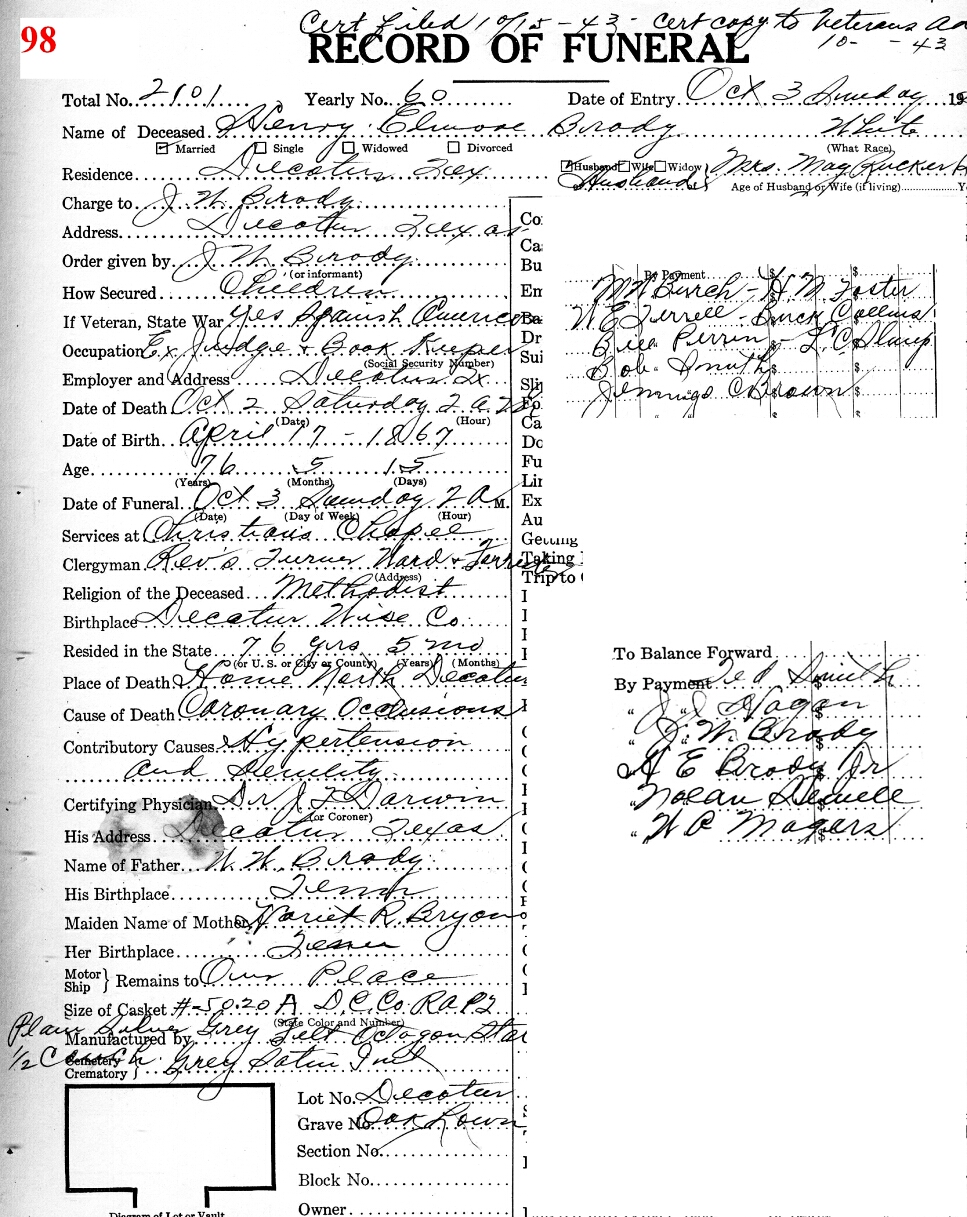 98
Cert filed 10/15 - 43 - Cert copy to Veterans Ad
10- - 43
RECORD OF FUNERAL
Total No. 2101 Yearly No. 60 Date of Entry Oct 3 Sunday 19
Name of Deceased Henry Elmore Brady White
Married Single Widowed Divorced (What Race)
Residence Decatur Tex Husband Wife Widow Mrs. May Rucker
Husband Age of Husband or Wife (if living)
Charge to J W Brady
Address Decatur Texas
Order given by J W Brady
(or informant)
How Secured Children
If Veteran, State War Yes Spanish America
Occupation Ex Judge + Book Keeper
(Social Security Number)
Employer and Address Decatur Tx
Date of Death Oct 2 Saturday 2 a
(Date) (Hour)
Date of Birth April 17 - 1867
Age 76 5 15
(Years) (Months) (Days)
Date of Funeral Oct 3 Sunday 2 M.
(Date) (Day of Week) (Hour)
Services at Christians Chapel
Clergyman Rev's Turner Ward +
(Address)
Religion of the Deceased Methodist
Birthplace Decatur Wise Co.
Resided in the State 76 yrs 5 mo
(or U. S. or City or County) (Years) (Months)
Place of Death Home North Decatur
Cause of Death Coronary Occlusions
Contributory Causes Hypertension
and Senility
Certifying Physician Dr J F Darwin
(or Coroner)
His Address Decatur Texas
Name of Father W. W. Brady
His Birthplace Tenn
Maiden Name of Mother Hariet R. Bryon
Her Birthplace Tenn
Motor
Ship } Remains to Our Place
Size of Casket #-5020 A D.C.Co. RAPS
(State Color and Number)
Plain Silver Grey Felt Octagon
Manufactured by
1/2 Couch Grey Satin
Cemetery
Crematory }
Lot No. Decatur
Grave No. Oak Lawn
Section No.
Block No.
Owner
Diagram of Lot or Vault
Co
Ca
Bu
En
Ba
Dr
Sui
Sli
Ca
Do
Fu
Lir
Ex
Au
Getting
Taking
Trip to
By Payment $ $
M W Burch - H M Foster
W E Terrell - Buck Collins
Bill Perrin - L C Slimp
Bob Smith
Jennings C Brown
To Balance Forward
By Payment Ted Smith
" J J Hagan $
" J. W. Brady $
H E Brady Jr
" Nolan Sewell
" W P Magers $